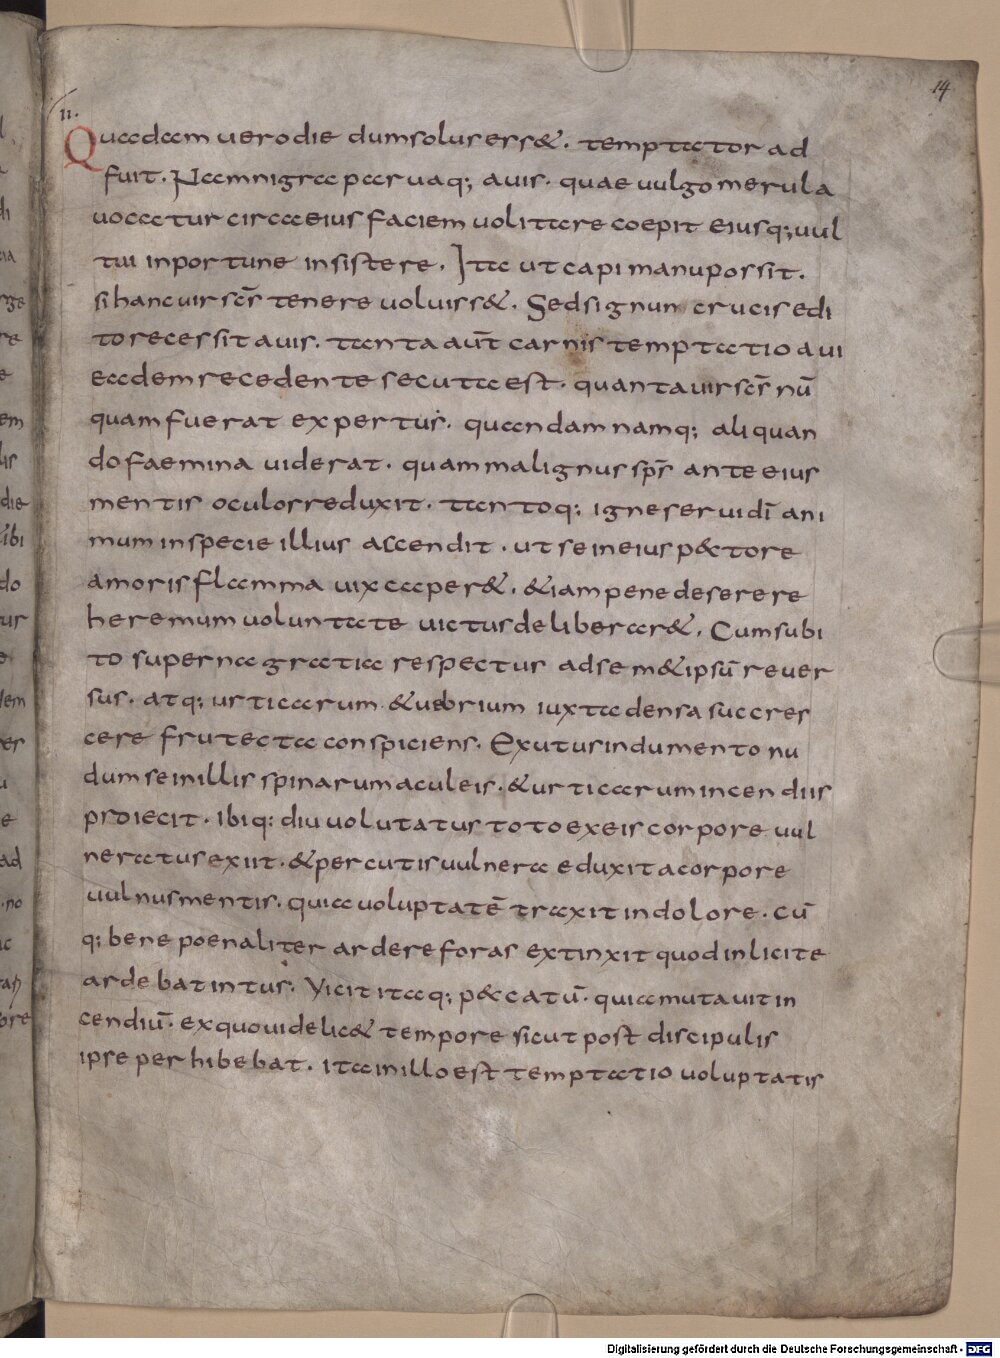 14
II.
Quadam uero die dum solus ess&. temptator ad
fuit. Nam nigra paruaq; auis. quae uulgo merula
uocatur circa eius faciem uolitare coepit eiusq; uul
tui inportune insistere. Ita ut capi manu possit.
si hanc uir scs̄ tenere uoluiss&. Sed signum crucis edi
to recessit auis. tanta aut̄ carnis temptatio aui
eadem recedente secuta est. quanta uir scs̄ nū
quam fuerat expertus. quandam namq; aliquan
do faemina uiderat. quam malignus sps̄ ante eius
mentis oculos reduxit. tantoq; igne seruidī ani
mum in specie illius ascendit. ut se in eius p&tore
amoris flamma uix caper&. &iam pene deserere
heremum uoluntate uictus deliberar&. Cum subi
to superna gratia respectus ad sem&ipsū reuer
sus. atq; urticarum & uebrium iuxta densa succres
cere frutecta conspiciens. Exutus indumento nu
dum se in illis spinarum aculeis. & urticarum incendiis
proiecit. Ibiq; diu uolutatus toto ex eis corpore uul
neratus exiit. & per cutis uulnera eduxit a corpore
uulnus mentis. quia uoluptatē traxit in dolore. Cū
q; bene poenaliter arderet foras extinxit quod inlicite
ardebat intus. Vicit itaq; p&catū. quia mutauit in
cendiū. ex quo uidelic& tempore sicut post discipulis
ipse perhibebat. ita in illo est temptatio uoluptatis
Digitalisierung gefördert durch die Deutsche Forschungsgemeinschaft - DFG